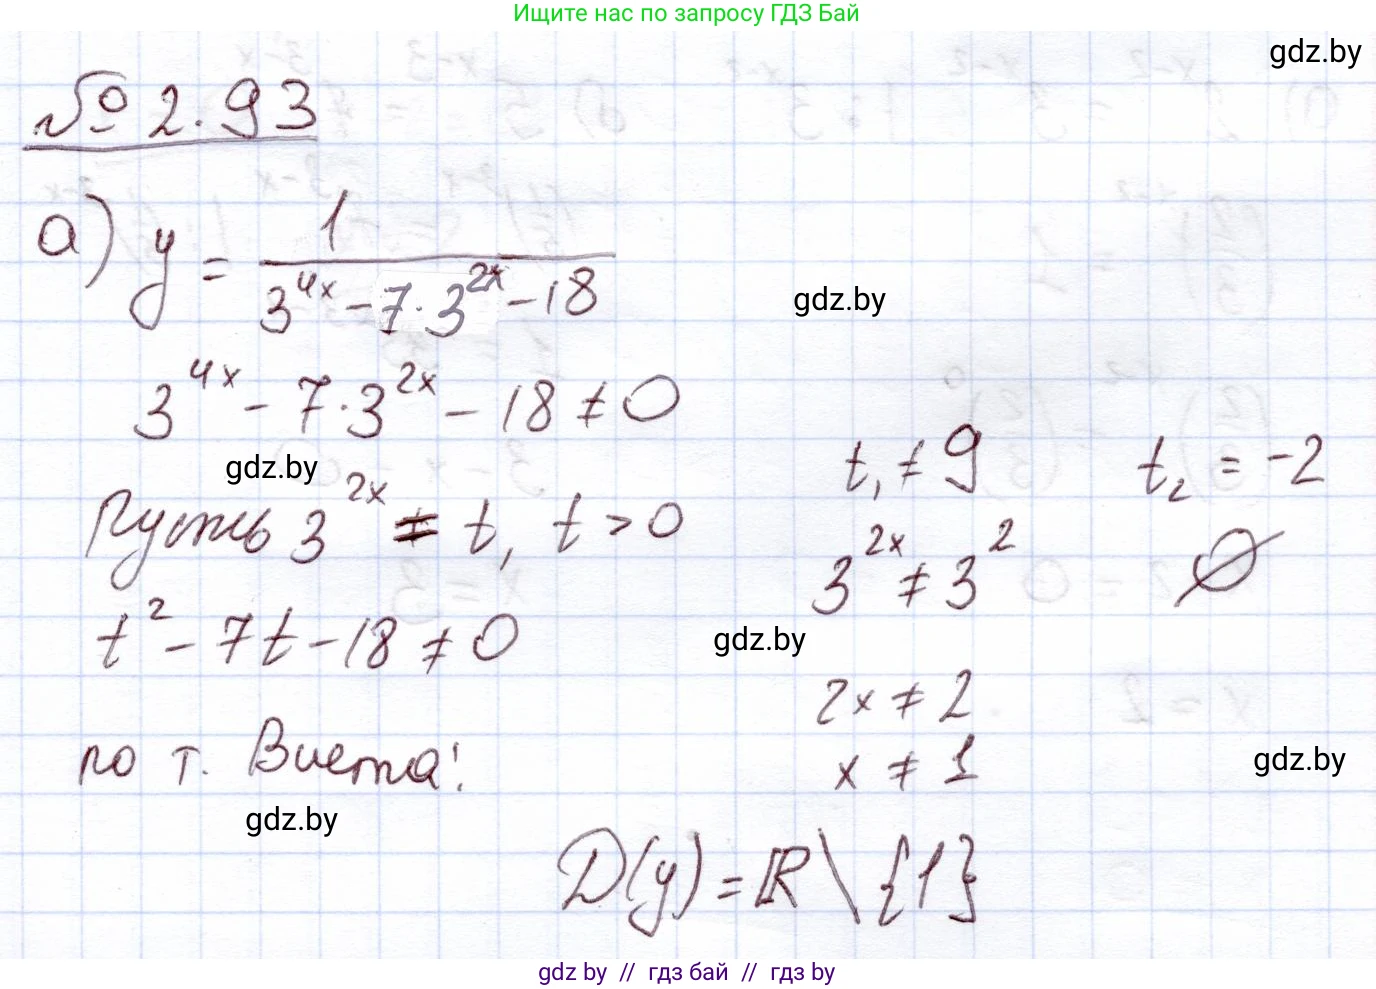 Ищите нас по запросу ГДЗ Бай
gdz.by
№ 2.93
а) y = 1 / (3^{4x} - 7·3^{2x} - 18)
gdz.by
3^{4x} - 7·3^{2x} - 18 ≠ 0
gdz.by
Пусть 3^{2x} = t, t > 0
t^2 - 7t - 18 ≠ 0
по т. Виета:
gdz.by
t_1 ≠ 9 t_2 = -2
3^{2x} ≠ 3^2 ∅
gdz.by
2x ≠ 2
x ≠ 1
gdz.by
D(y) = ℝ \ {1}
gdz by // гдз бай // гдз by